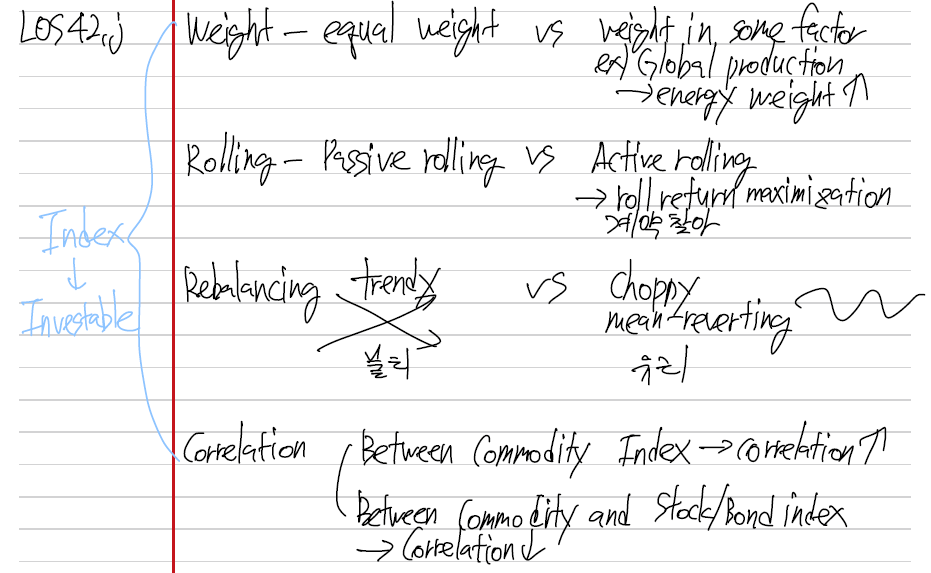 LOS42.j
Weight - equal weight vs weight in some factor
ex) Global production
→ energy weight↑
Rolling - Passive rolling vs Active rolling
→ roll return maximization
계약 찾아
Index
↓
Investable
Rebalancing trendy vs choppy
mean-reverting
불리
유리
Correlation Between Commodity Index → correlation↑
Between Commodity and Stock/Bond index
→ Correlation↓